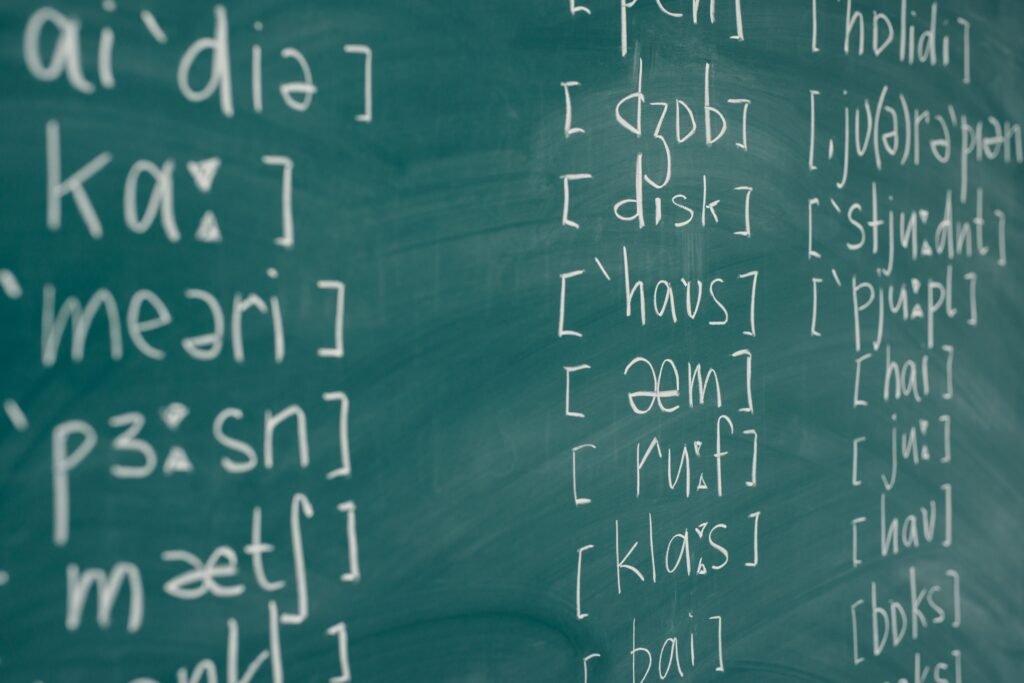 ai`diə]
kɑː]
`meəri]
`pɜːsn]
mætʃ]
[pen]
[dʒɒb]
[disk]
[`haʊs]
[æm]
[ruːf]
[klɑːs]
[bai]
[`hɒlidi]
[ˌjʊ(ə)rə`pɪən
[`stjuːdnt]
[`pjuːpl]
[hai]
[juː]
[hav]
[bɒks]